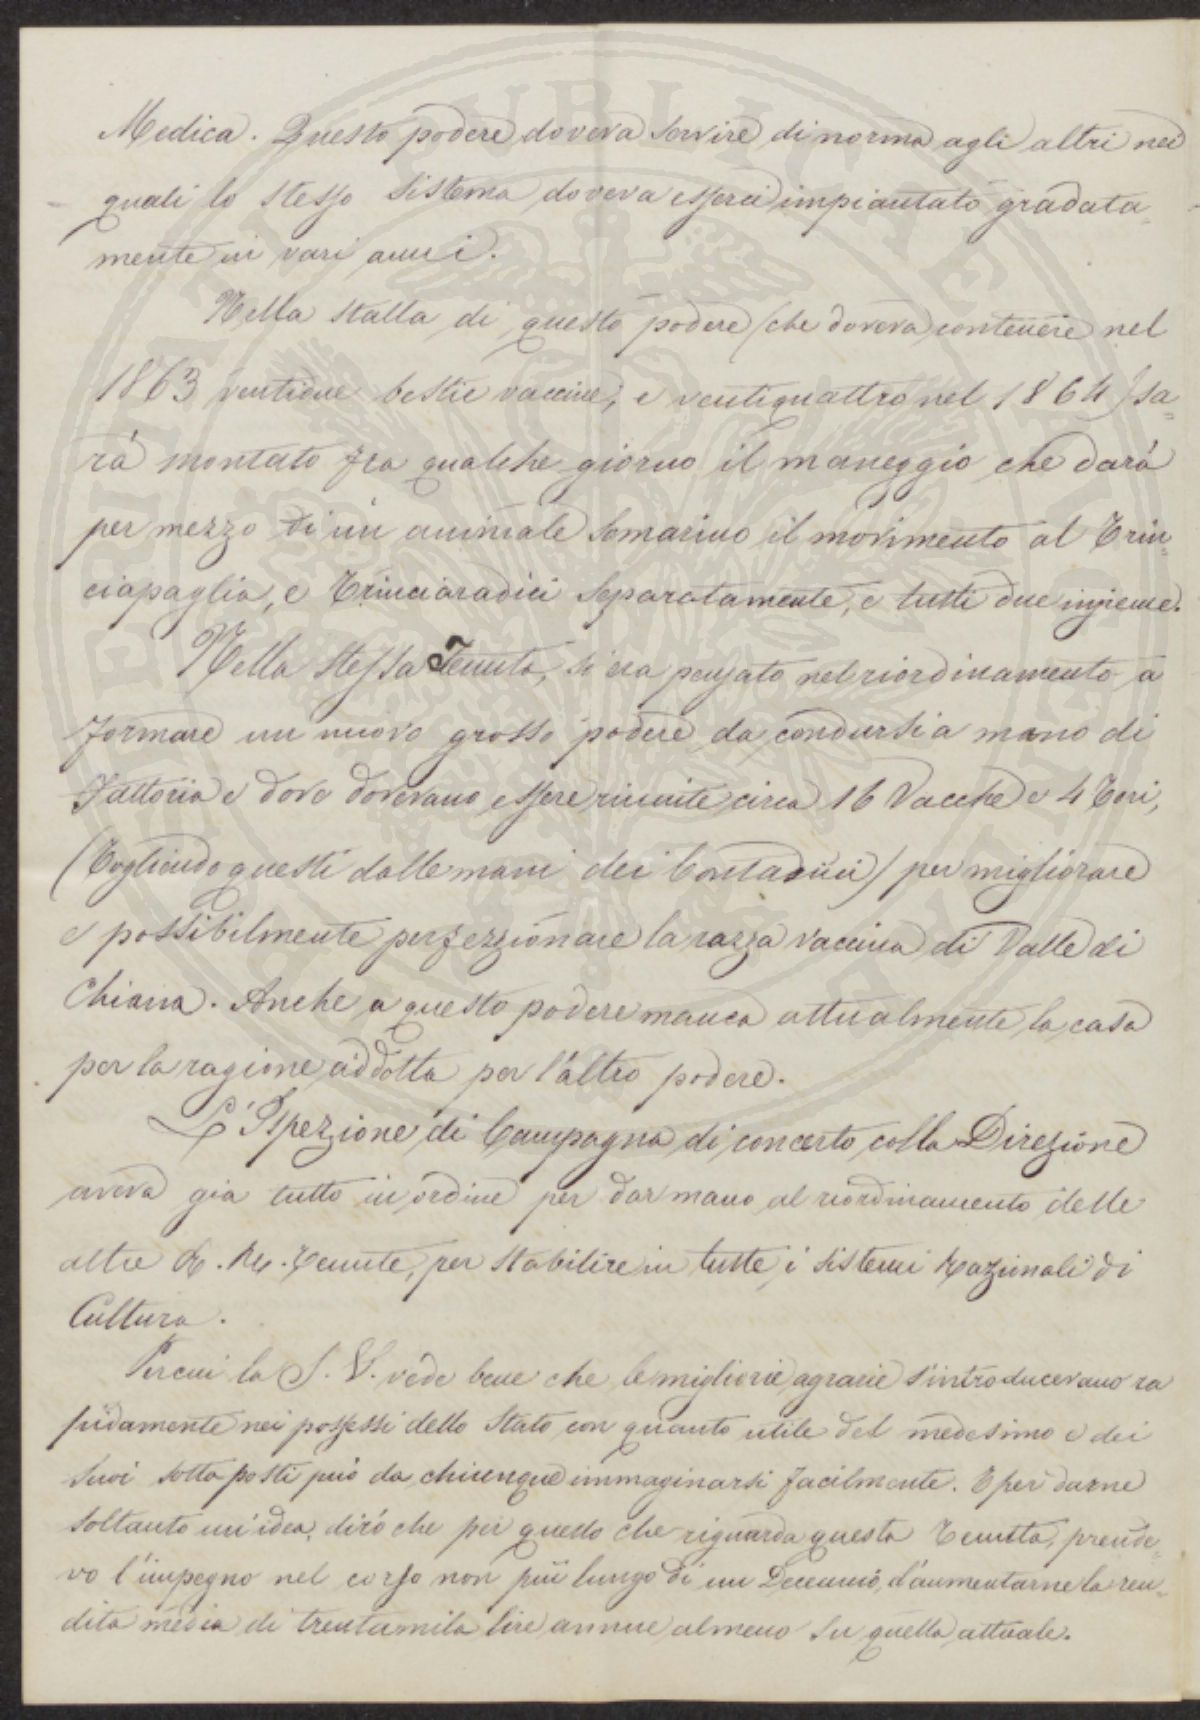 Medica. Questo podere doveva servire di norma agli altri nei
quali lo stesso sistema doveva esserci impiantato gradata-
mente in vari anni.
Nella stalla di questo podere (che doveva contenere nel
1863 ventidue bestie vaccine, e ventiquattro nel 1864) sa=
rà montato fra qualche giorno il maneggio che darà
per mezzo di un animale somarino il movimento al Trin-
ciapaglia, e Trinciaradici separatamente, e tutti due insieme.
Nella stessa Tenuta, si era pensato nel riordinamento a
formare un nuovo grosso podere da condursi a mano di
Fattoria e dove dovevano essere riunite circa 16 Vacche e 4 Tori,
(Togliendo questi dalle mani dei Contadini) per migliorare
e possibilmente perfezzionare la razza vaccina di Valle di
Chiana. Anche a questo podere manca attualmente la casa
per la ragione addotta per l'altro podere.
L'Ispezione di Campagna di concerto colla Direzione
aveva gia tutto in ordine per dar mano al riordinamento delle
altre R. R. Tenute, per stabilire in tutte i sistemi Razionali di
Cultura.
Percui la S. V. vede bene che le migliorie agrarie s'introducevano ra
pidamente nei possessi dello Stato con quanto utile del medesimo e dei
suoi sottoposti può da chiunque immaginarsi facilmente. E per darne
soltanto un'idea, dirò che per questo che riguarda questa Tenuta, prende-
vo l'impegno nel corso non più lungo di un Decennio, d'aumentarne la ren-
dita media di trentamila lire annue almeno su quella attuale.
PUBLICHE